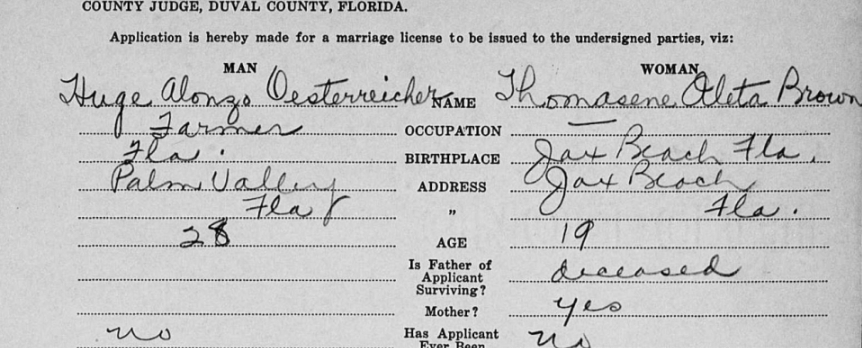 COUNTY JUDGE, DUVAL COUNTY, FLORIDA.
Application is hereby made for a marriage license to be issued to the undersigned parties, viz:
MAN WOMAN
Huge Alonzo Oesterreicher NAME Thomasene Oleta Brown
Farmer OCCUPATION —
Fla. BIRTHPLACE Jax Beach Fla.
Palm Valley ADDRESS Jax Beach
Fla „ Fla.
28 AGE 19
Is Father of
Applicant
Surviving? deceased
Mother? yes
no Has Applicant no
Ever Been